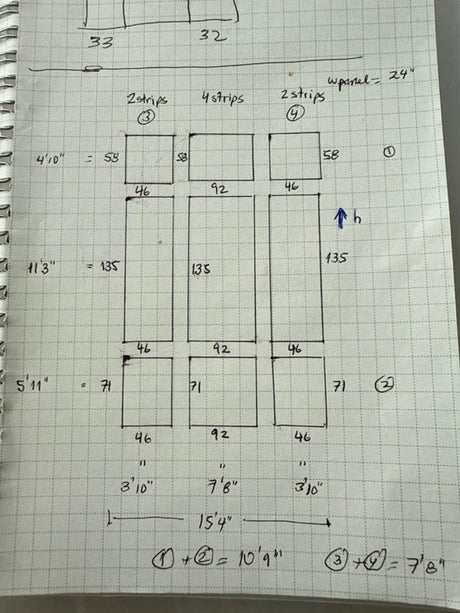 33 32
w panel = 24"
2 strips 4 strips 2 strips
③ ④
4'10" = 58 58 58 ①
46 92 46
h
11'3" = 135 135 135
46 92 46
5'11" = 71 71 71 ②
46 92 46
" " "
3'10" 7'8" 3'10"
15'4"
① + ② = 10'9" ③ + ④ = 7'8"